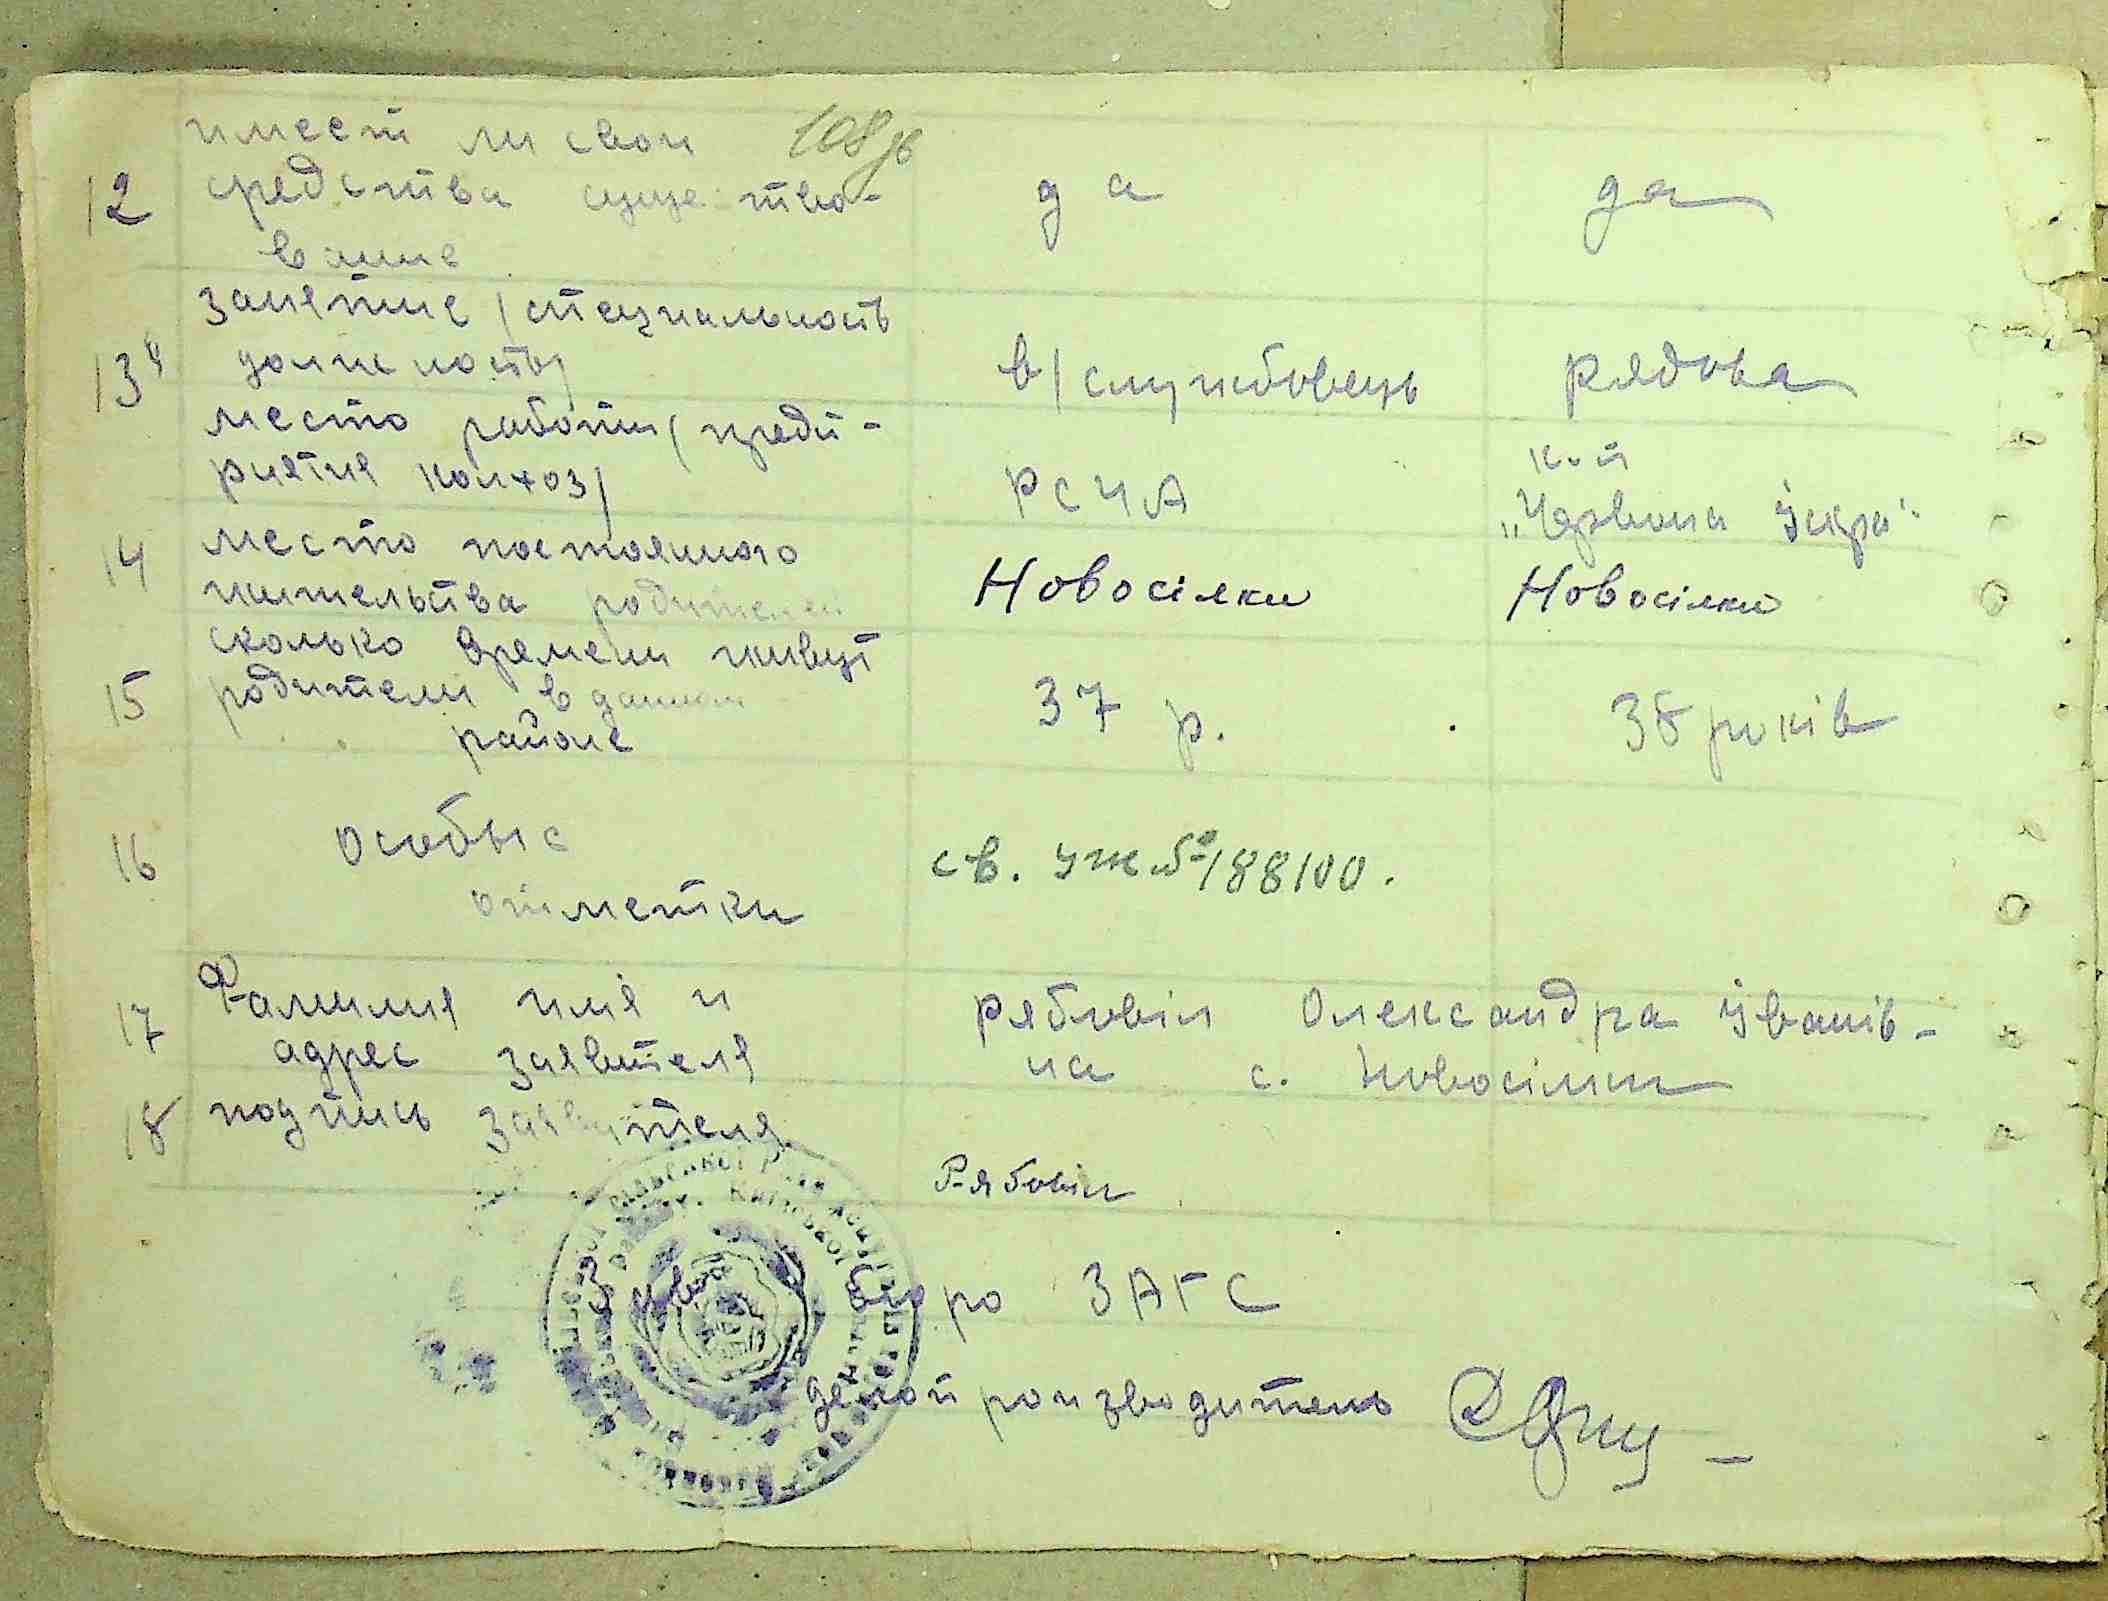 108 зв
12 имеет ли свои средства существо- да да
вание
13 занятие (специальность
должность) в/службовець рядова
место работы (предп- к-п
риятия колхоз) РСЧА „Червона Іскра“
14 место постоянного
жительства родителей Новосілки Новосілки
сколько времени живут
15 родители в данном 37 р. 38 років
районе
16 особые св. уж № 188100.
отметки
17 Фамилия имя и Рябовіл Олександра Іванів-
адрес заявителя на с. Новосілки
18 подпись заявителя
Рябовіл
бюро ЗАГС
делопроизводитель